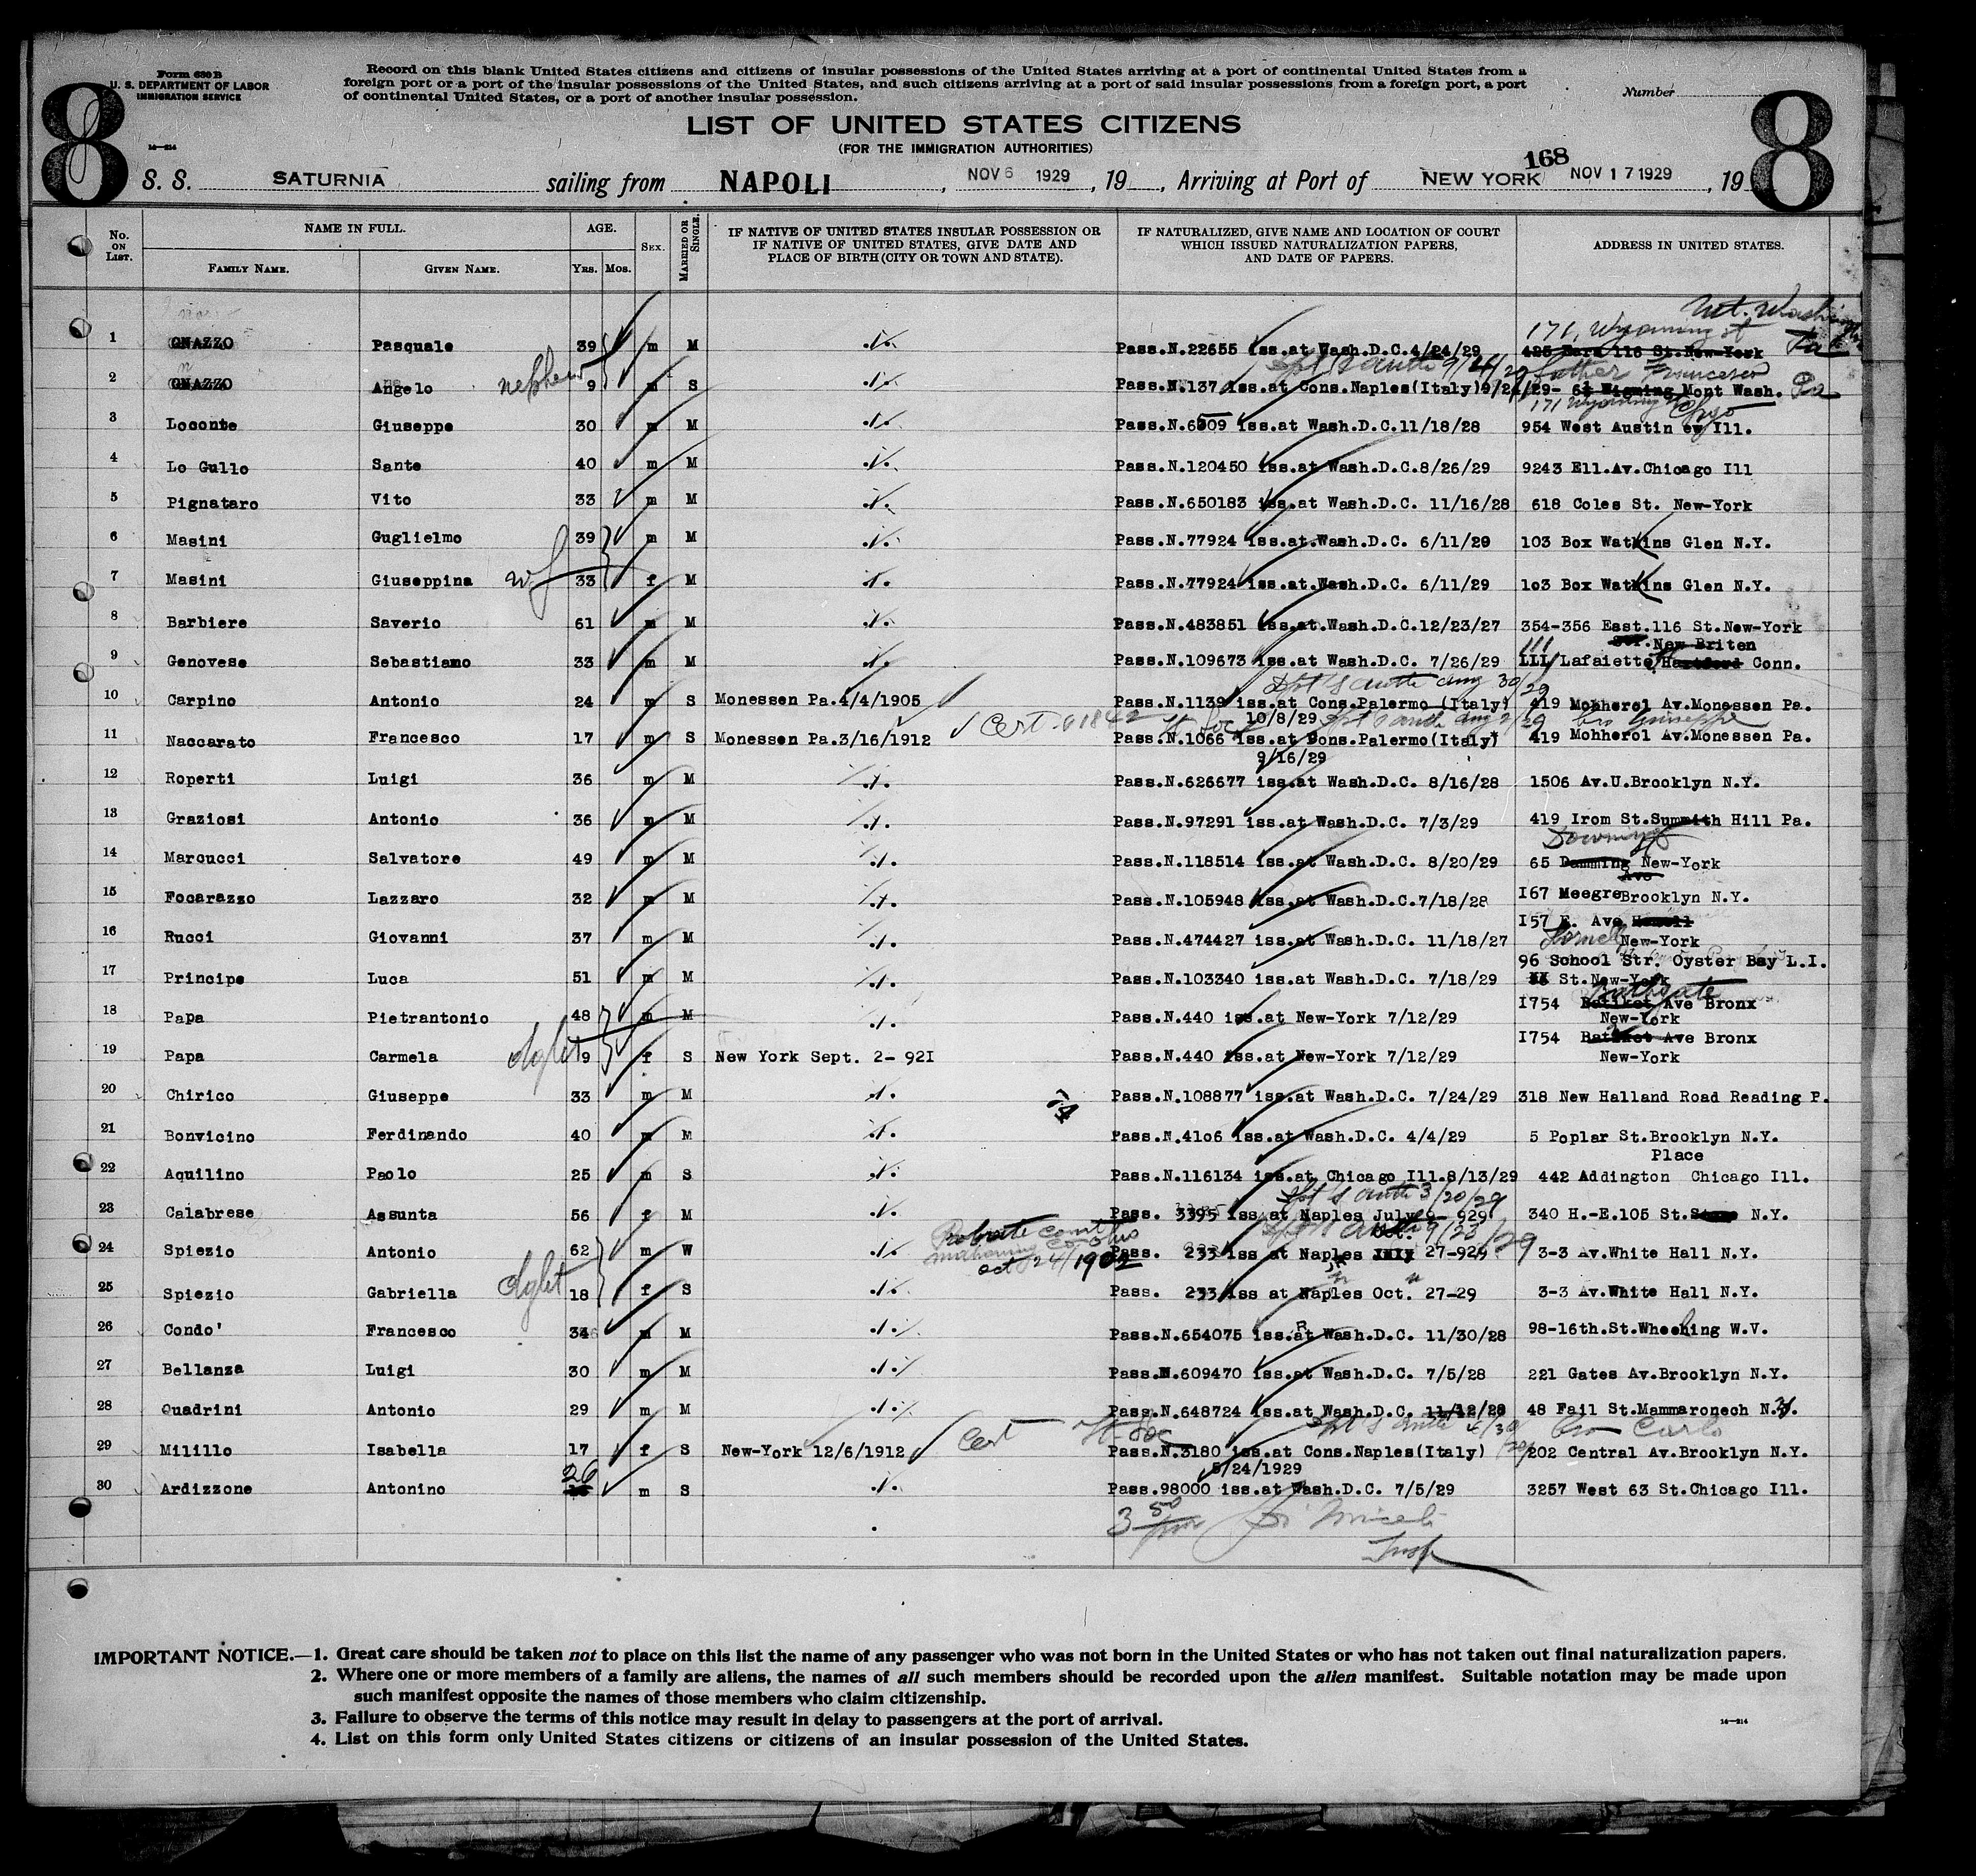 Form 630 B
U. S. DEPARTMENT OF LABOR
IMMIGRATION SERVICE
8
Record on this blank United States citizens and citizens of insular possessions of the United States arriving at a port of continental United States from a
foreign port or a port of the insular possessions of the United States, and such citizens arriving at a port of said insular possessions from a foreign port, a port
of continental United States, or a port of another insular possession.
Number
8
LIST OF UNITED STATES CITIZENS
(FOR THE IMMIGRATION AUTHORITIES)
14—214
168
S. S. SATURNIA sailing from NAPOLI, NOV 6 1929, 19__, Arriving at Port of NEW YORK NOV 17 1929, 19
No. ON LIST. NAME IN FULL. FAMILY NAME. GIVEN NAME. AGE. YRS. MOS. SEX. MARRIED OR SINGLE. IF NATIVE OF UNITED STATES INSULAR POSSESSION OR IF NATIVE OF UNITED STATES, GIVE DATE AND PLACE OF BIRTH (CITY OR TOWN AND STATE). IF NATURALIZED, GIVE NAME AND LOCATION OF COURT WHICH ISSUED NATURALIZATION PAPERS, AND DATE OF PAPERS. ADDRESS IN UNITED STATES.
Mt. Washington
171, Wyoming st Pa
1 GNAZZO Pasquale 39 m M ./. Pass.N.22655 iss.at Wash.D.C.4/24/29 425 Eara 116 St.New-York
Dpt's auth 9/4/29 father Francesco
2 GNAZZO Angelo nephew 9 m S ./. Pass.N.137 iss.at Cons.Naples(Italy)9/24/29- 61 Wigming Mont Wash. Pa
171 Wyoming Chgo
3 Loconte Giuseppe 30 m M ./. Pass.N.6509 iss.at Wash.D.C.11/18/28 954 West Austin ev Ill.
4 Lo Gullo Sante 40 m M ./. Pass.N.120450 iss.at Wash.D.C.8/26/29 9243 Ell.Av.Chicago Ill
5 Pignataro Vito 33 m M ./. Pass.N.650183 iss.at Wash.D.C. 11/16/28 618 Coles St. New-York
6 Masini Guglielmo 39 m M ./. Pass.N.77924 iss.at.Wash.D.C. 6/11/29 103 Box Watkins Glen N.Y.
7 Masini Giuseppina wf 33 f M ./. Pass.N.77924 iss.at.Wash.D.C. 6/11/29 1o3 Box Watkins Glen N.Y.
8 Barbiere Saverio 61 m M ./. Pass.N.483851 iss.at.Wash.D.C.12/23/27 354-356 East.116 St.New-York
111 Str.New Briten
9 Genovese Sebastiano 33 m M ./. Pass.N.109673 iss.at Wash.D.C. 7/26/29 III Lafaiette St Hartford Conn.
Dpt's auth aug 30/29
10 Carpino Antonio 24 m S Monessen Pa.4/4/1905 Pass.N.1139 iss.at Cons.Palermo (Italy) 419 Mohherol Av.Monessen Pa.
Cert 61842 10/8/29 Dpt's auth aug 2/29 bro Giuseppe
11 Naccarato Francesco 17 m S Monessen Pa.3/16/1912 Pass.N.1066 iss.at Cons.Palermo(Italy) 419 Mohherol Av.Monessen Pa.
9/16/29
12 Roperti Luigi 36 m M ./. Pass.N.626677 iss.at Wash.D.C. 8/16/28 1506 Av.U.Brooklyn N.Y.
13 Graziosi Antonio 36 m M ./. Pass.N.97291 iss.at Wash.D.C. 7/3/29 419 Irom St.Summith Hill Pa.
Downing
14 Marcucci Salvatore 49 m M ./. Pass.N.118514 iss.at Wash.D.C. 8/20/29 65 Damming New-York
Ave
15 Focarazzo Lazzaro 32 m M ./. Pass.N.105948 iss.at Wash.D.C.7/18/28 I67 Meegre Brooklyn N.Y.
I57 E. Ave Hornell
16 Rucci Giovanni 37 m M ./. Pass.N.474427 iss.at Wash.D.C. 11/18/27 Hornell New-York
96 School Str. Oyster Bay L.I.
17 Principe Luca 51 m M ./. Pass.N.103340 iss.at Wash.D.C. 7/18/29 St.New-York
Bathgate
I754 Batiket Ave Bronx
18 Papa Pietrantonio 48 m M ./. Pass.N.440 iss.at New-York 7/12/29 New-York
I754 Batiket Ave Bronx
19 Papa Carmela dghtr 9 f S New York Sept. 2- 92I Pass.N.440 iss.at New-York 7/12/29 New-York
20 Chirico Giuseppe 33 m M ./. Pass.N.108877 iss.at Wash.D.C. 7/24/29 318 New Halland Road Reading P.
21 Bonvicino Ferdinando 40 m M ./. Pass.N.41o6 iss.at Wash.D.C. 4/4/29 5 Poplar St.Brooklyn N.Y.
Place
22 Aquilino Paolo 25 m S ./. Pass.N.116134 iss.at Chicago Ill.8/13/29 442 Addington Chicago Ill.
Dpt's auth 3/20/29
23 Calabrese Assunta 56 f M ./. Pass. 3395 iss at Naples July 9- 929 340 H.-E.105 St. N.Y.
Probate Court Mahoning Co Ohio Oct 24/1902 Dpt's auth 9/23/29 Oct.
24 Spiezio Antonio 62 m W ./. Pass. 233 iss at Naples July 27-929 3-3 Av.White Hall N.Y.
25 Spiezio Gabriella dghtr 18 f S ./. Pass. 233 iss at Naples Oct. 27-29 3-3 Av.White Hall N.Y.
26 Condo' Francesco 34 m M ./. Pass.N.654075 iss.at Wash.D.C. 11/30/28 98-16th.St.Wheeling W.V.
27 Bellanza Luigi 30 m M ./. Pass.N.609470 iss.at Wash.D.C. 7/5/28 221 Gates Av.Brooklyn N.Y.
28 Quadrini Antonio 29 m M ./. Pass.N.648724 iss.at Wash.D.C. 11/12/28 48 Fail St.Mammaronech N.Y.
Cert Dpt's auth 4/30/29 bro Carlo
29 Milillo Isabella 17 f S New-York 12/6/1912 Pass.N.3180 iss.at Cons.Naples(Italy) 202 Central Av.Brooklyn N.Y.
26 5/24/1929
30 Ardizzone Antonino m S ./. Pass.98000 iss.at Wash.D.C. 7/5/29 3257 West 63 St.Chicago Ill.
3 50
Insp
IMPORTANT NOTICE.—1. Great care should be taken not to place on this list the name of any passenger who was not born in the United States or who has not taken out final naturalization papers.
2. Where one or more members of a family are aliens, the names of all such members should be recorded upon the alien manifest. Suitable notation may be made upon
such manifest opposite the names of those members who claim citizenship.
3. Failure to observe the terms of this notice may result in delay to passengers at the port of arrival.
4. List on this form only United States citizens or citizens of an insular possession of the United States.
14—214